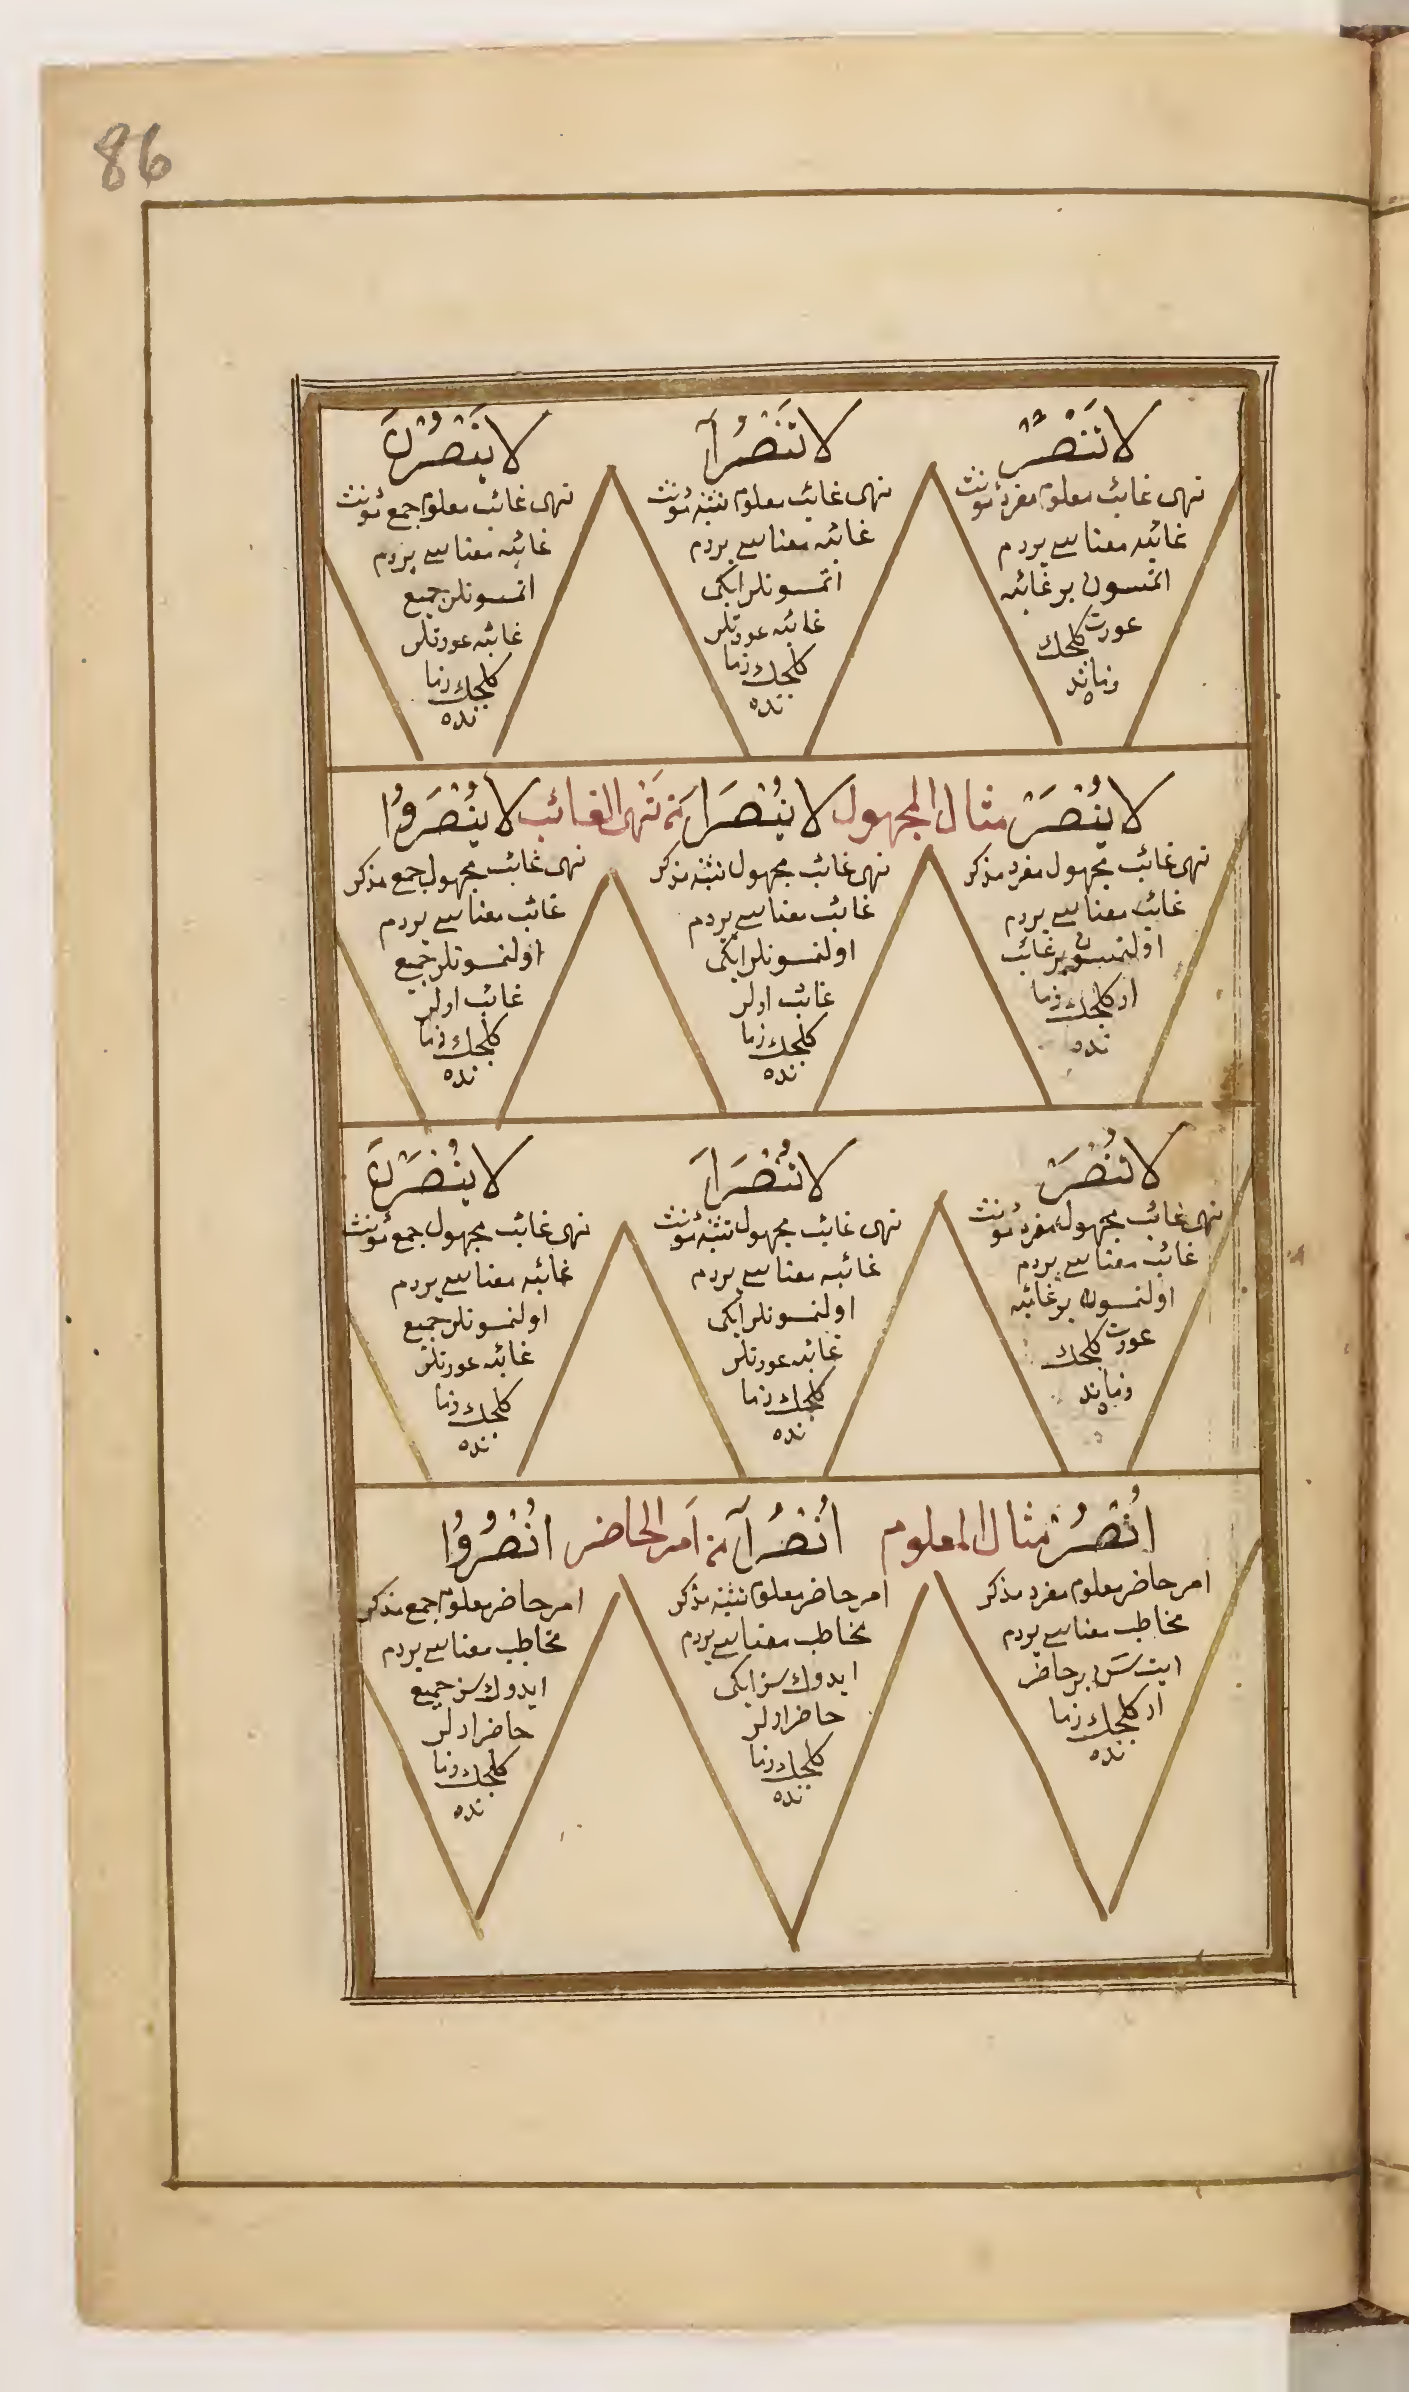 86
لَا تَنْصُرْ
نهى غائب معلوم مفرد مؤنث
غائبه معناسے يردم
اتمسون بر غائبه
عورت كلجك
زماند
ه
لَا تَنْصُرَا
نهى غائب معلوم تثنيه مؤنث
غائبه معناسے يردم
اتمسونلر ايكى
غائبه عورتلر
كلجك زما
نده
لَا يَنْصُرْنَ
نهى غائب معلوم جمع مؤنث
غائبه معناسے يردم
اتمسونلر جميع
غائبه عورتلر
كلجك زما
نده
لَا يُنْصَرْ مثال المجهول لَا يُنْصَرَا من نهى الغائب لَا يُنْصَرُوا
نهى غائب مجهول مفرد مذكر
غائب معناسے يردم
اولنمسون بر غائب
ار كلجك زما
نده
نهى غائب مجهول تثنيه مذكر
غائب معناسے يردم
اولنمسونلر ايكى
غائب ارلر
كلجك زما
نده
نهى غائب مجهول جمع مذكر
غائب معناسے يردم
اولنمسونلر جميع
غائب ارلر
كلجك زما
نده
لَا تُنْصَرْ
نهى غائب مجهول مفرد مؤنث
غائب معناسے يردم
اولنمسون بر غائبه
عورت كلجك
زماند
ه
لَا تُنْصَرَا
نهى غائب مجهول تثنيه مؤنث
غائبه معناسے يردم
اولنمسونلر ايكى
غائبه عورتلر
كلجك زما
نده
لَا يُنْصَرْنَ
نهى غائب مجهول جمع مؤنث
غائبه معناسے يردم
اولنمسونلر جميع
غائبه عورتلر
كلجك زما
نده
اُنْصُرْ مثال المعلوم اُنْصُرَا من امر الحاضر اُنْصُرُوا
امر حاضر معلوم مفرد مذكر
مخاطب معناسے يردم
ايت سن بر حاضر
ار كلجك زما
نده
امر حاضر معلوم تثنيه مذكر
مخاطب معناسے يردم
ايدوك سز ايكى
حاضر ارلر
كلجك زما
نده
امر حاضر معلوم جمع مذكر
مخاطب معناسے يردم
ايدوك سز جميع
حاضر ارلر
كلجك زما
نده